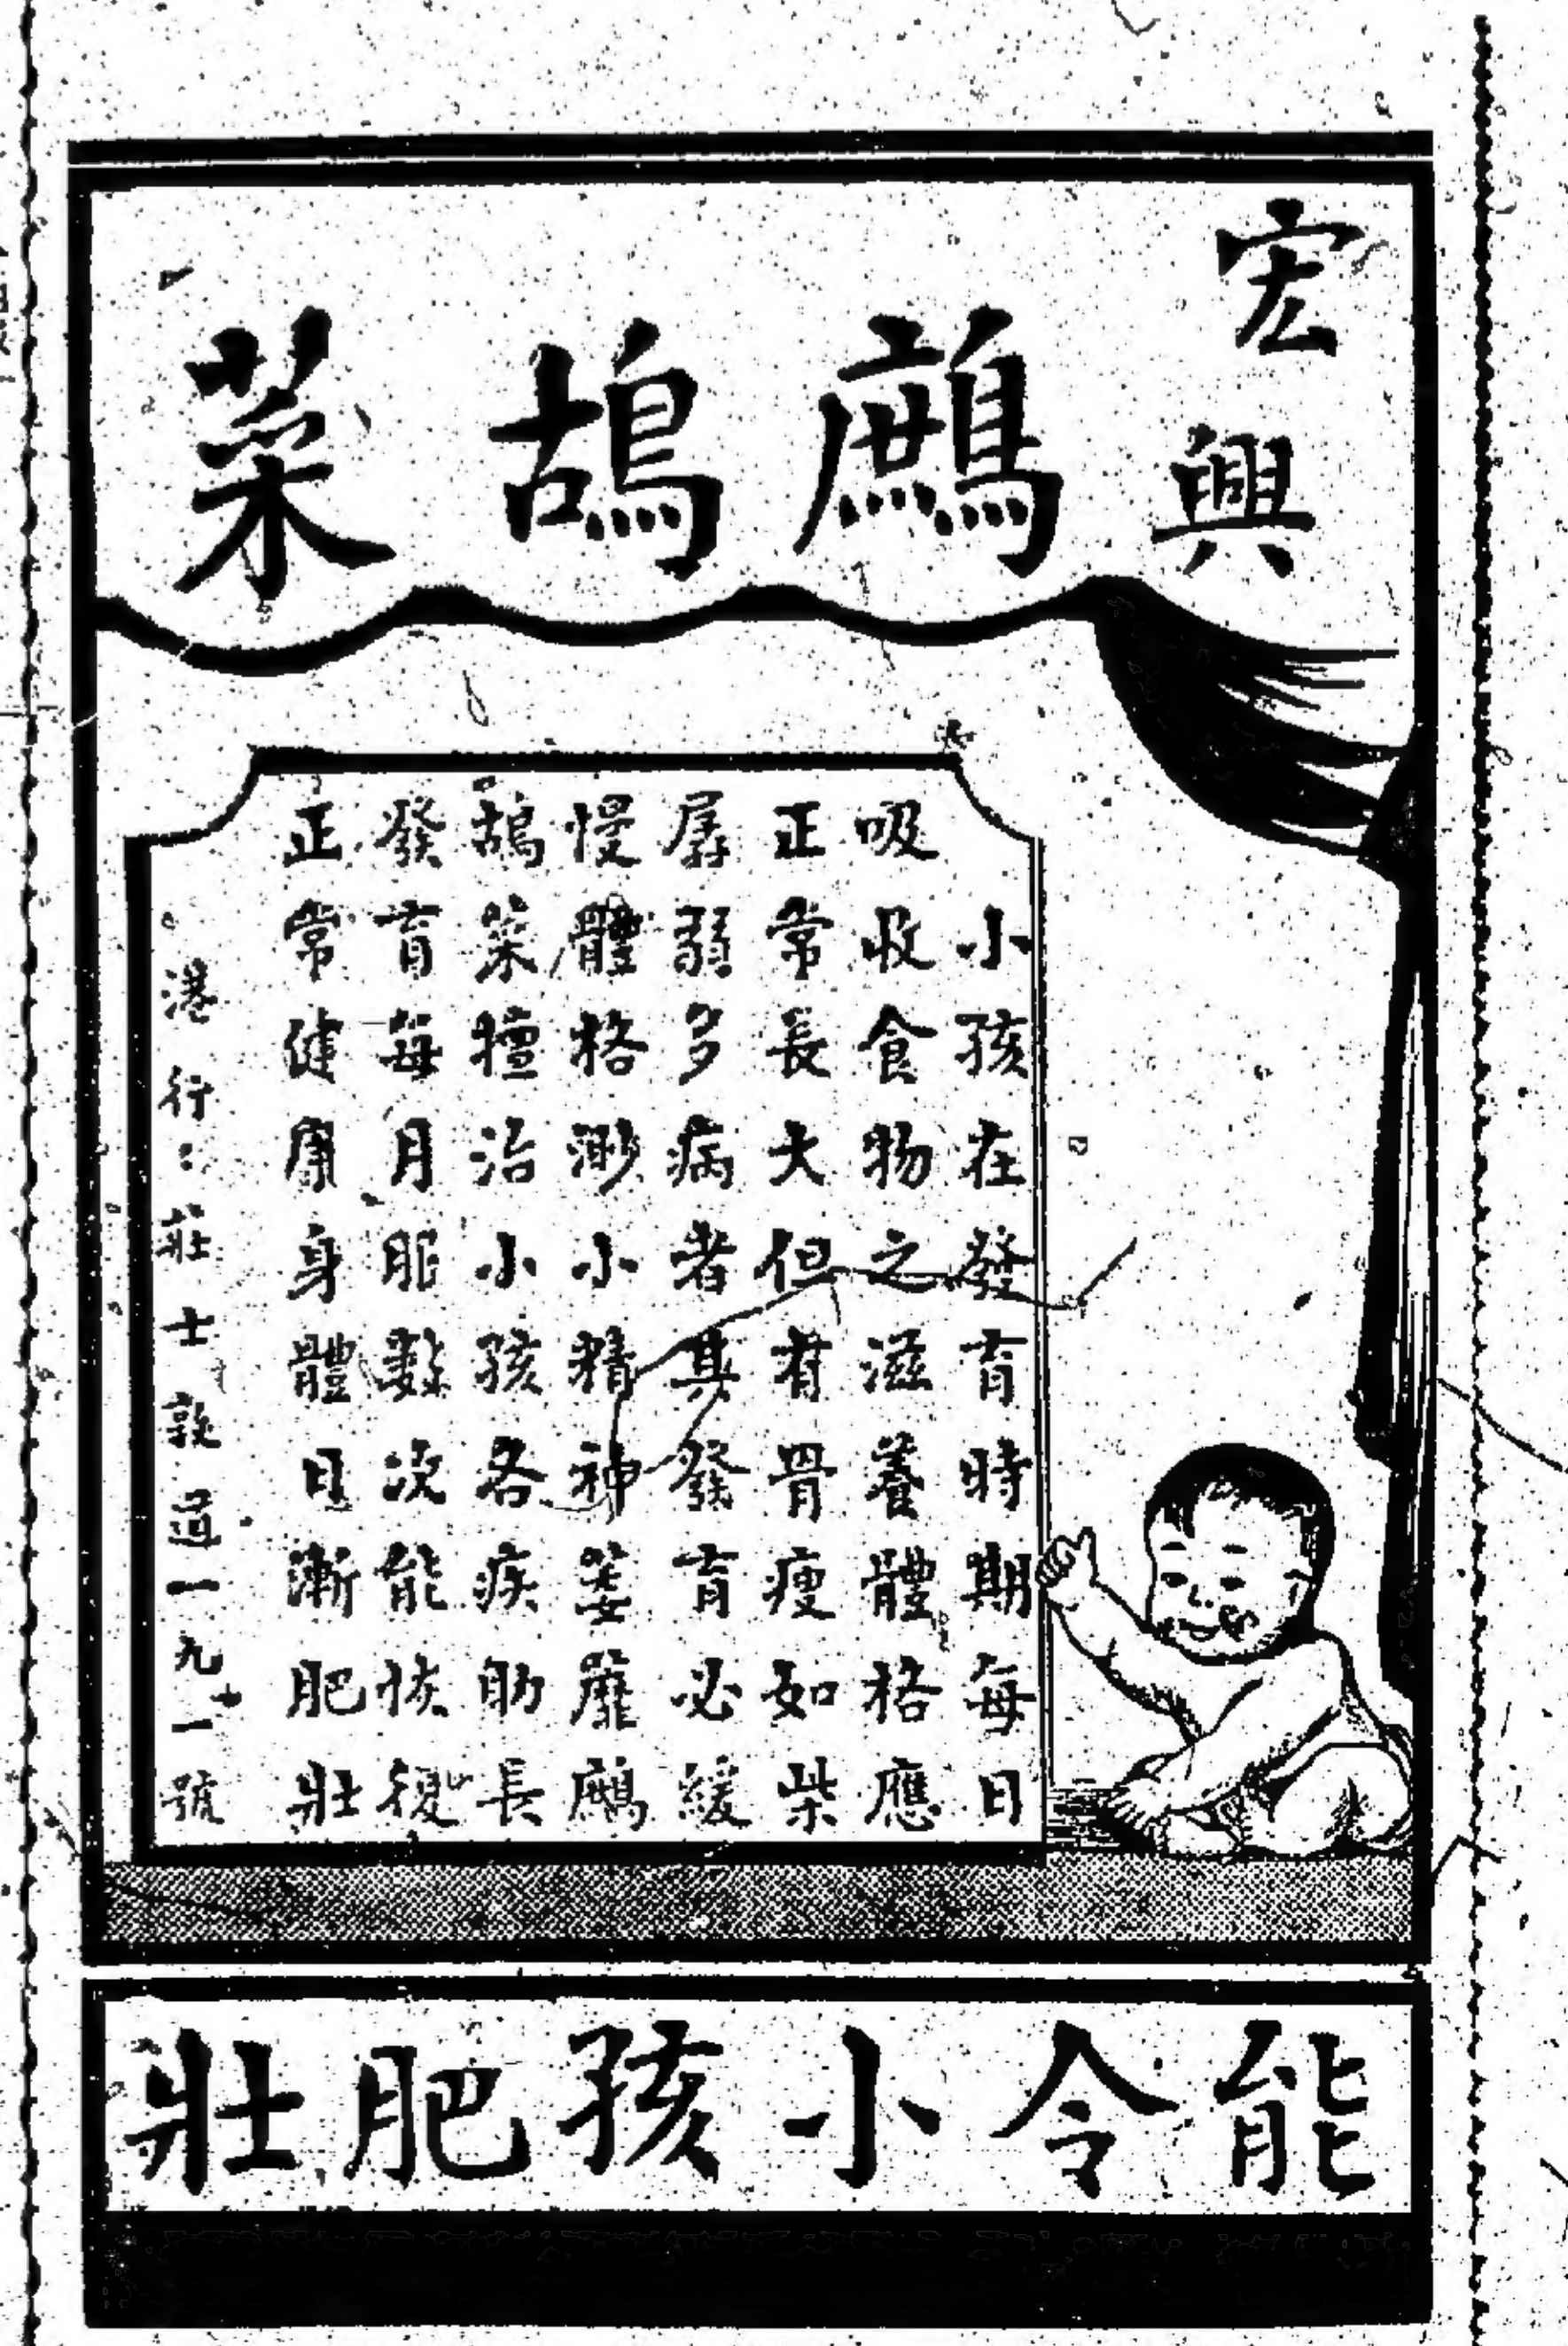 宏興
鷓鴣菜
小孩在發育時期每日
吸收食物之滋養體格應
正常長大但有骨瘦如柴
孱弱多病者其發育必緩
慢體格渺小精神萎靡鷓
鴣菜擅治小孩各疾助長
發育每月服數次能恢復
正常健康身體日漸肥壯
港行：莊士敦道一九一號
能令小孩肥壯